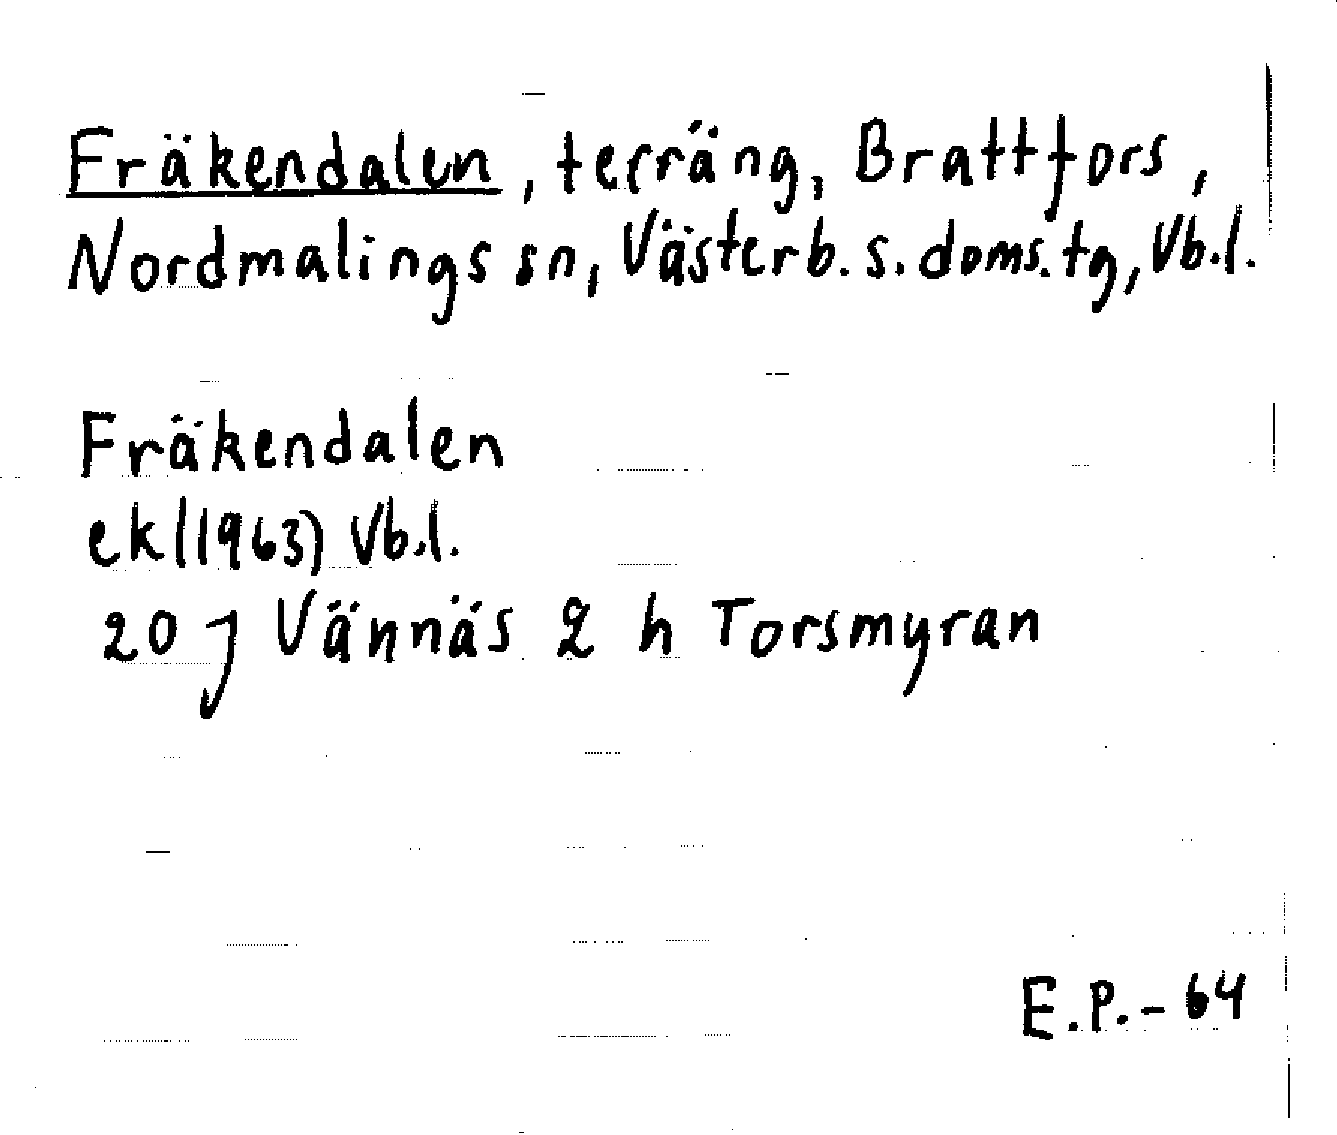 Fräkendalen, terräng, Brattfors,
Nordmalings sn, Västerb. s. doms. tg, Vb.l.
Fräkendalen
ek (1963) Vb.l.
20 J Vännäs 2 h Torsmyran
E.P.-64